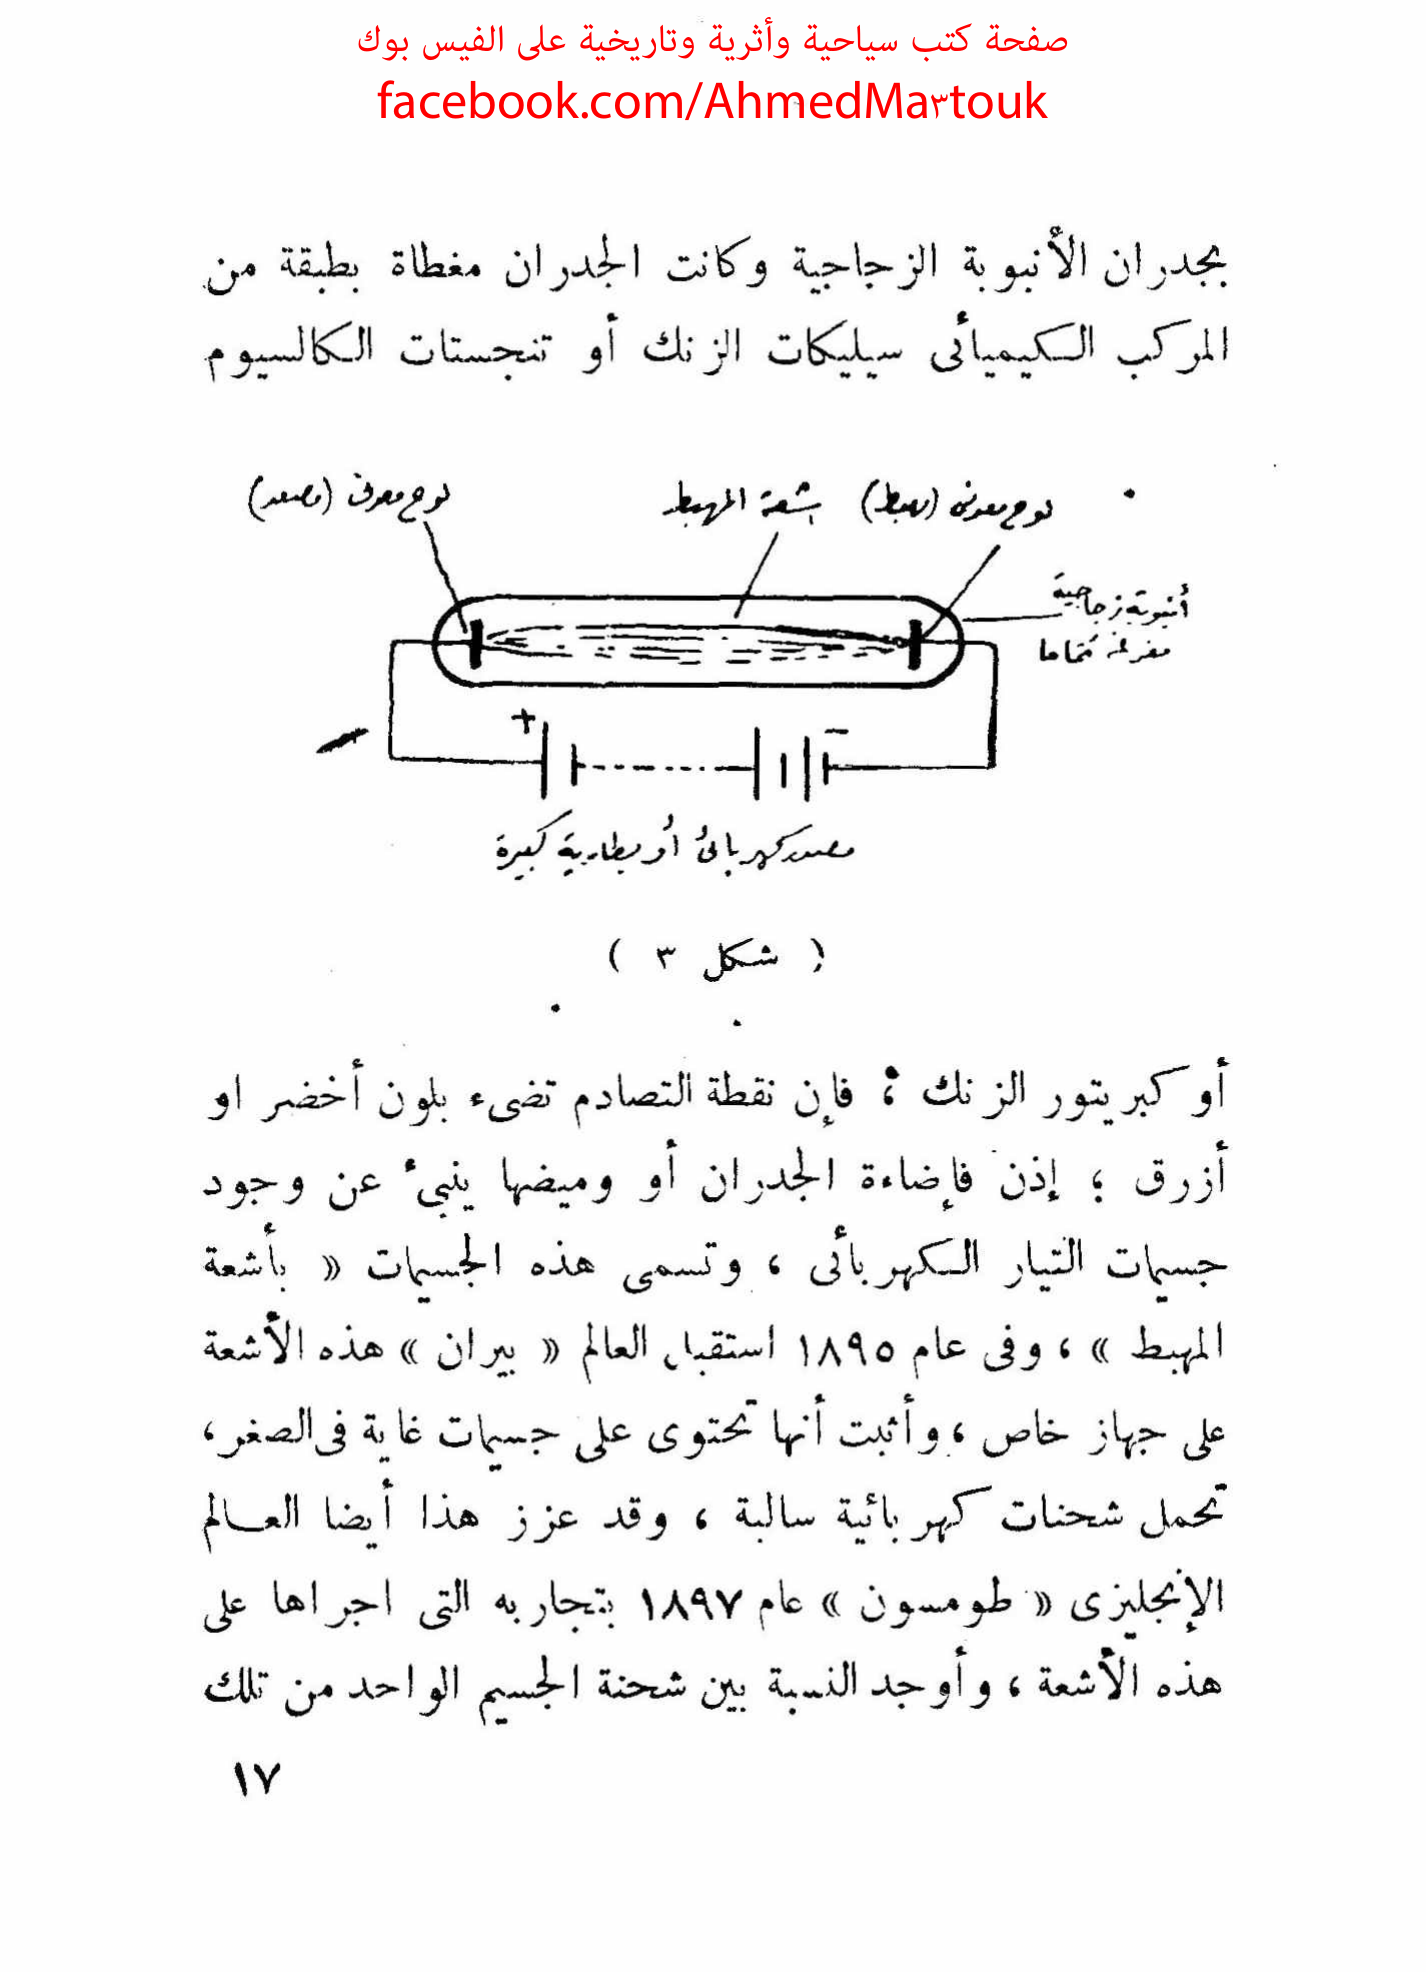 صفحة كتب سياحية وأثرية وتاريخية على الفيس بوك
facebook.com/AhmedMa٣touk
بجدران الأنبوبة الزجاجية وكانت الجدران مغطاة بطبقة من
المركب الكيميائى سيليكات الزنك أو تنجستات الكالسيوم
لوح معدنى (مهبط)
أشعة المهبط
لوح معدنى (مصعد)
أنبوبة زجاجية
مفرغة تماما
+
−
مصدر كهربائى أو بطارية كبيرة
( شكل ٣ )
أو كبريتور الزنك ؛ فإن نقطة التصادم تضىء بلون أخضر او
أزرق ؛ إذن فإضاءة الجدران أو وميضها ينبىء عن وجود
جسيمات التيار الكهربائى ، وتسمى هذه الجسيمات « بأشعة
المهبط » ، وفى عام ١٨٩٥ استقبل العالم « بيران » هذه الأشعة
على جهاز خاص ، وأثبت أنها تحتوى على جسيمات غاية فى الصغر ،
تحمل شحنات كهربائية سالبة ، وقد عزز هذا أيضا العالم
الإنجليزى « طومسون » عام ١٨٩٧ بتجاربه التى اجراها على
هذه الأشعة ، وأوجد النسبة بين شحنة الجسيم الواحد من تلك
١٧